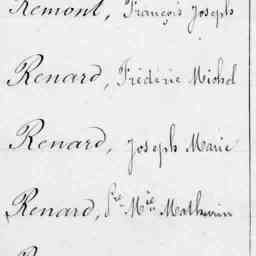 Remont, François Joseph
Renard, Frédéric Michel
Renard, Joseph Marie
Renard, Pre. Mie. Mathurin